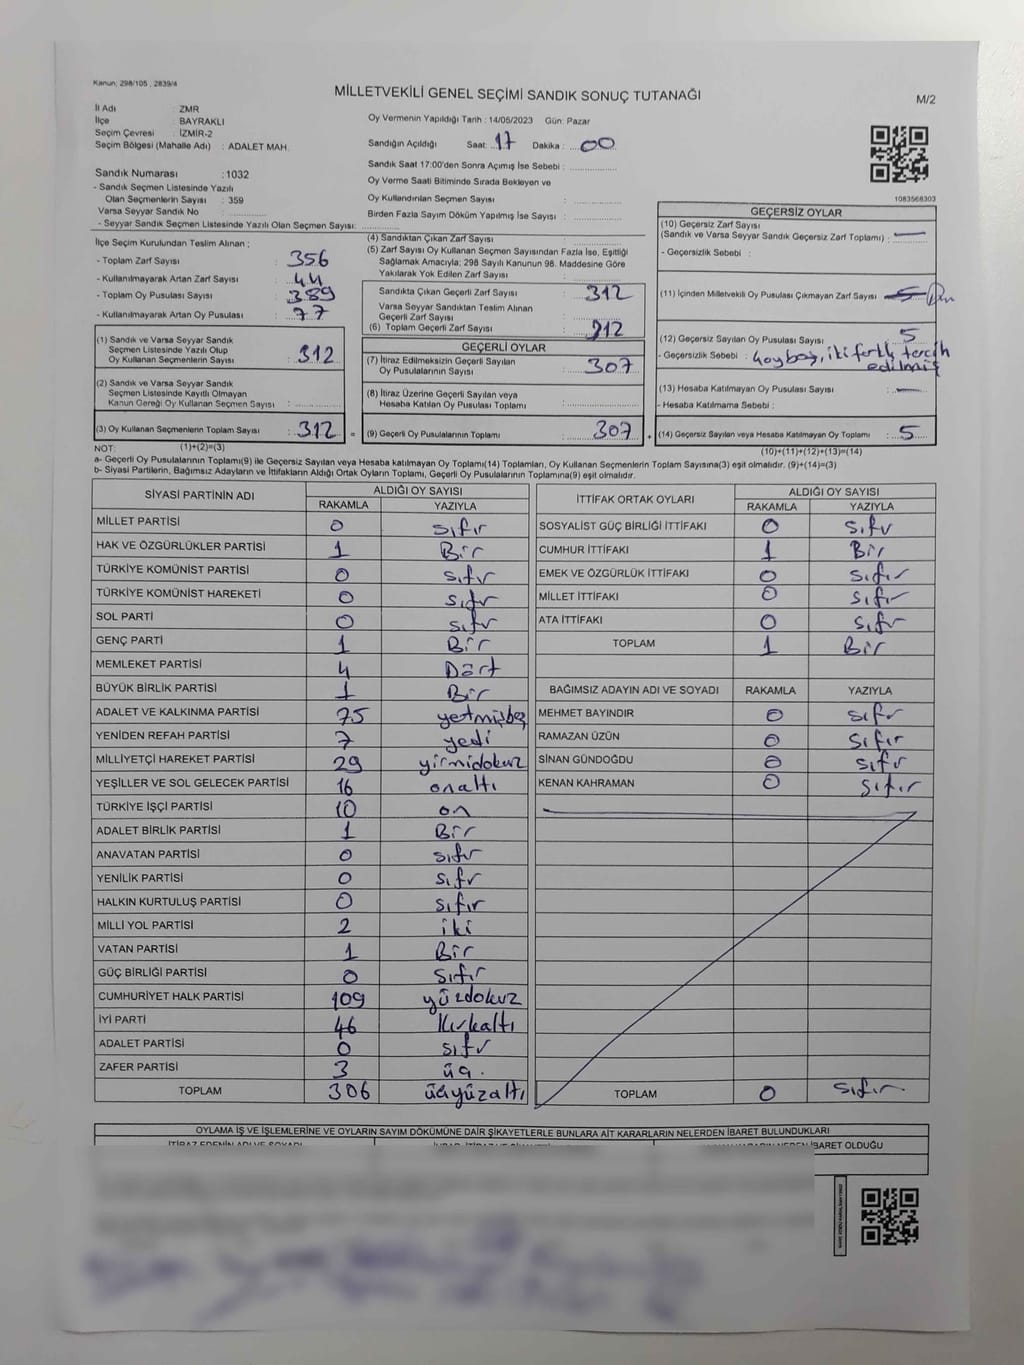 Kanun: 298/105 , 2839/4
MİLLETVEKİLİ GENEL SEÇİMİ SANDIK SONUÇ TUTANAĞI
M/2
İl Adı : ZMR
İlçe : BAYRAKLI
Seçim Çevresi : İZMİR-2
Seçim Bölgesi (Mahalle Adı) : ADALET MAH.
Sandık Numarası : 1032
- Sandık Seçmen Listesinde Yazılı
Olan Seçmenlerin Sayısı : 359
Varsa Seyyar Sandık No
- Seyyar Sandık Seçmen Listesinde Yazılı Olan Seçmen Sayısı:
Oy Vermenin Yapıldığı Tarih : 14/05/2023 Gün: Pazar
Sandığın Açıldığı Saat: 17 Dakika : 00
Sandık Saat 17:00'den Sonra Açımış İse Sebebi :
Oy Verme Saati Bitiminde Sırada Bekleyen ve
Oy Kullandırılan Seçmen Sayısı :
Birden Fazla Sayım Döküm Yapılmış İse Sayısı :
1083568303
İlçe Seçim Kurulundan Teslim Alınan ;
- Toplam Zarf Sayısı : 356
- Kullanılmayarak Artan Zarf Sayısı : 44
- Toplam Oy Pusulası Sayısı : 389
- Kullanılmayarak Artan Oy Pusulası : 77
(1) Sandık ve Varsa Seyyar Sandık
Seçmen Listesinde Yazılı Olup
Oy Kullanan Seçmenlerin Sayısı : 312
(2) Sandık ve Varsa Seyyar Sandık
Seçmen Listesinde Kayıtlı Olmayan
Kanun Gereği Oy Kullanan Seçmen Sayısı :
(3) Oy Kullanan Seçmenlerin Toplam Sayısı : 312 =
(4) Sandıktan Çıkan Zarf Sayısı :
(5) Zarf Sayısı Oy Kullanan Seçmen Sayısından Fazla İse, Eşitliği
Sağlamak Amacıyla; 298 Sayılı Kanunun 98. Maddesine Göre
Yakılarak Yok Edilen Zarf Sayısı :
Sandıkta Çıkan Geçerli Zarf Sayısı : 312
Varsa Seyyar Sandıktan Teslim Alınan
Geçerli Zarf Sayısı :
(6) Toplam Geçerli Zarf Sayısı : 312
GEÇERLİ OYLAR
(7) İtiraz Edilmeksizin Geçerli Sayılan
Oy Pusulalarının Sayısı : 307
(8) İtiraz Üzerine Geçerli Sayılan veya
Hesaba Katılan Oy Pusulası Toplamı :
(9) Geçerli Oy Pusulalarının Toplamı : 307 +
GEÇERSİZ OYLAR
(10) Geçersiz Zarf Sayısı
(Sandık ve Varsa Seyyar Sandık Geçersiz Zarf Toplamı) : —
- Geçersizlik Sebebi :
(11) İçinden Milletvekili Oy Pusulası Çıkmayan Zarf Sayısı
(12) Geçersiz Sayılan Oy Pusulası Sayısı : 5
- Geçersizlik Sebebi : 4oy boş, iki farklı tercih
edilmiş
(13) Hesaba Katılmayan Oy Pusulası Sayısı : —
- Hesaba Katılmama Sebebi :
(14) Geçersiz Sayılan veya Hesaba Katılmayan Oy Toplamı : 5
NOT: (1)+(2)=(3)
(10)+(11)+(12)+(13)=(14)
a- Geçerli Oy Pusulalarının Toplamı(9) ile Geçersiz Sayılan veya Hesaba katılmayan Oy Toplamı(14) Toplamları, Oy Kullanan Seçmenlerin Toplam Sayısına(3) eşit olmalıdır. (9)+(14)=(3)
b- Siyasi Partilerin, Bağımsız Adayların ve İttifakların Aldığı Ortak Oyların Toplamı, Geçerli Oy Pusulalarının Toplamına(9) eşit olmalıdır.
SİYASİ PARTİNİN ADI ALDIĞI OY SAYISI
RAKAMLA YAZIYLA
MİLLET PARTİSİ 0 sıfır
HAK VE ÖZGÜRLÜKLER PARTİSİ 1 Bir
TÜRKİYE KOMÜNİST PARTİSİ 0 sıfır
TÜRKİYE KOMÜNİST HAREKETİ 0 sıfır
SOL PARTİ 0 sıfır
GENÇ PARTİ 1 Bir
MEMLEKET PARTİSİ 4 Dört
BÜYÜK BİRLİK PARTİSİ 1 Bir
ADALET VE KALKINMA PARTİSİ 75 yetmişbeş
YENİDEN REFAH PARTİSİ 7 yedi
MİLLİYETÇİ HAREKET PARTİSİ 29 yirmidokuz
YEŞİLLER VE SOL GELECEK PARTİSİ 16 onaltı
TÜRKİYE İŞÇİ PARTİSİ 10 on
ADALET BİRLİK PARTİSİ 1 Bir
ANAVATAN PARTİSİ 0 sıfır
YENİLİK PARTİSİ 0 sıfır
HALKIN KURTULUŞ PARTİSİ 0 sıfır
MİLLİ YOL PARTİSİ 2 iki
VATAN PARTİSİ 1 Bir
GÜÇ BİRLİĞİ PARTİSİ 0 sıfır
CUMHURİYET HALK PARTİSİ 109 yüzdokuz
İYİ PARTİ 46 Kırkaltı
ADALET PARTİSİ 0 sıfır
ZAFER PARTİSİ 3 üç.
TOPLAM 306 üçyüzaltı
İTTİFAK ORTAK OYLARI ALDIĞI OY SAYISI
RAKAMLA YAZIYLA
SOSYALİST GÜÇ BİRLİĞİ İTTİFAKI 0 sıfır
CUMHUR İTTİFAKI 1 Bir
EMEK VE ÖZGÜRLÜK İTTİFAKI 0 sıfır
MİLLET İTTİFAKI 0 sıfır
ATA İTTİFAKI 0 sıfır
TOPLAM 1 Bir
BAĞIMSIZ ADAYIN ADI VE SOYADI RAKAMLA YAZIYLA
MEHMET BAYINDIR 0 sıfır
RAMAZAN ÜZÜN 0 sıfır
SİNAN GÜNDOĞDU 0 sıfır
KENAN KAHRAMAN 0 sıfır
TOPLAM 0 sıfır
OYLAMA İŞ VE İŞLEMLERİNE VE OYLARIN SAYIM DÖKÜMÜNE DAİR ŞİKAYETLERLE BUNLARA AİT KARARLARIN NELERDEN İBARET BULUNDUKLARI
İTİRAZ EDENİN ADI VE SOYADI
İBARET OLDUĞU